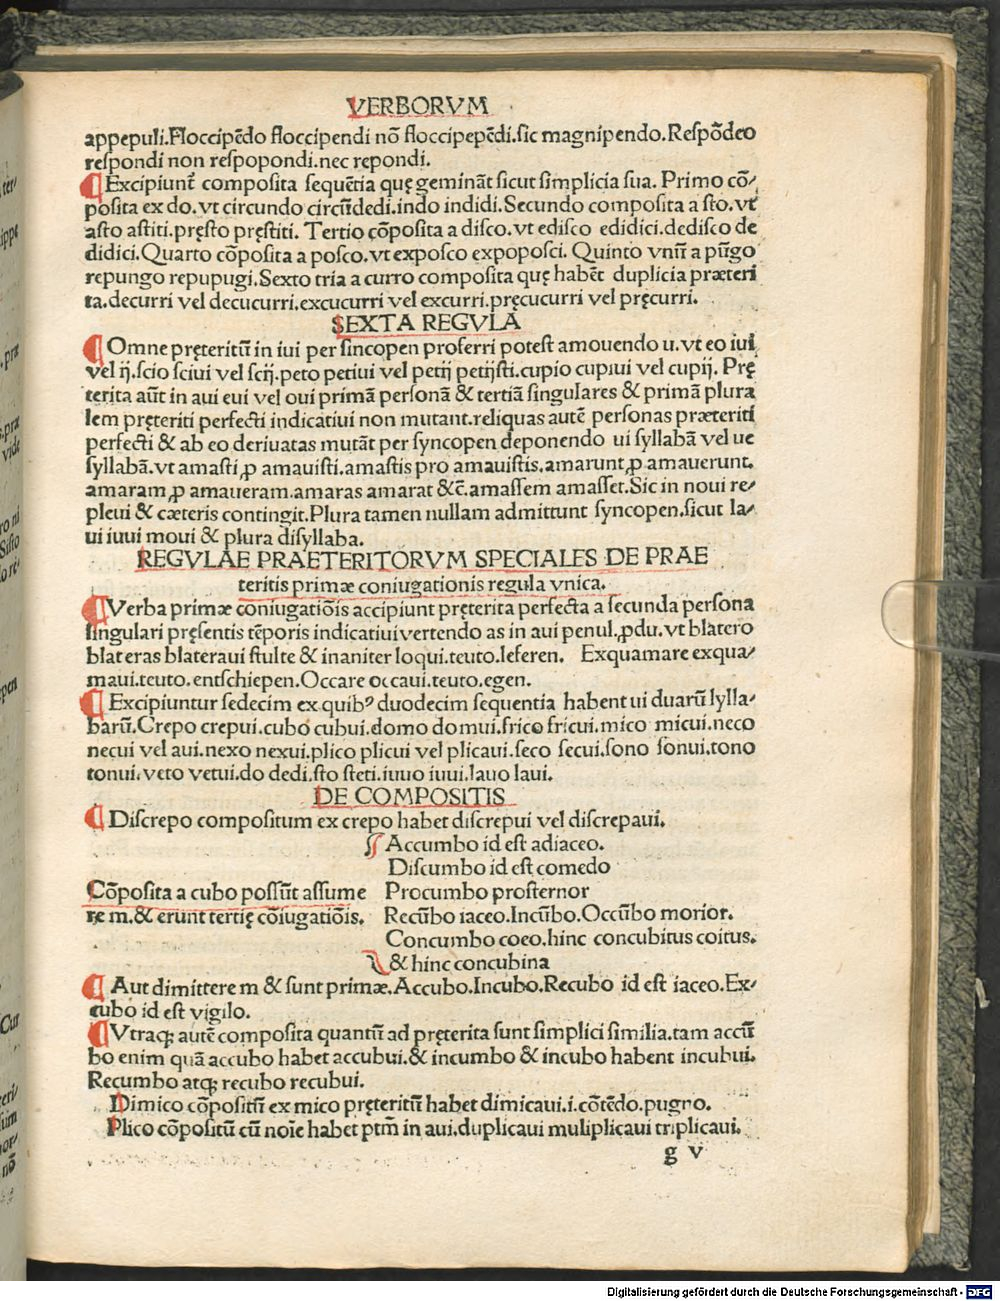 VERBORVM
appepuli.Floccipẽdo floccipendi nõ floccipepẽdi.sic magnipendo.Respõdeo
respondi non respopondi.nec repondi.
¶ Excipiunt᷑ composita sequẽtia quę geminãt sicut simplicia sua. Primo cõ⸗
posita ex do.vt circundo circũdedi.indo indidi.Secundo composita a sto.vt
asto astiti.pręsto pręstiti. Tertio cõposita a disco.vt edisco edidici.dedisco de
didici.Quarto cõposita a posco.vt exposco expoposci. Quinto vnũ a pũgo
repungo repupugi.Sexto tria a curro composita quę habẽt duplicia præteri
ta.decurri vel decucurri.excucurri vel excurri.pręcucurri vel pręcurri.
SEXTA REGVLA
¶ Omne pręteritũ in iui per sincopen proferri potest amouendo u.vt eo iui
vel ij.scio sciui vel scij.peto petiui vel petij petijsti.cupio cupiui vel cupij. Prę
terita aũt in aui eui vel oui primã personã & tertiã singulares & primã plura
lem pręteriti perfecti indicatiui non mutant.reliquas autẽ personas præteriti
perfecti & ab eo deriuatas mutãt per syncopen deponendo ui syllabã vel ue
syllabã.vt amasti ꝓ amauisti.amastis pro amauistis.amarunt ꝓ amauerunt.
amaram ꝓ amaueram.amaras amarat &c̃.amassem amasset.Sic in noui re⸗
pleui & cæteris contingit.Plura tamen nullam admittunt syncopen.sicut la⸗
ui iuui moui & plura disyllaba.
REGVLAE PRAETERITORVM SPECIALES DE PRAE
teritis primæ coniugationis regula vnica.
¶ Verba primæ coniugatiõis accipiunt pręterita perfecta a secunda persona
singulari pręsentis tẽporis indicatiui vertendo as in aui penul.ꝓdu.vt blatero
blateras blateraui stulte & inaniter loqui.teuto.leferen. Exquamare exqua⸗
maui.teuto.entschiepen.Occare occaui.teuto.egen.
¶ Excipiuntur sedecim ex quibꝰ duodecim sequentia habent ui duarũ sylla⸗
barũ.Crepo crepui.cubo cubui.domo domui.frico fricui.mico micui.neco
necui vel aui.nexo nexui.plico plicui vel plicaui.seco secui.sono sonui.tono
tonui.veto vetui.do dedi.sto steti.iuuo iuui.lauo laui.
DE COMPOSITIS
¶ Discrepo compositum ex crepo habet discrepui vel discrepaui.
Accumbo id est adiaceo.
Discumbo id est comedo
Cõposita a cubo possũt assume Procumbo prosternor
re m.& erunt tertię cõiugatiõis. Recũbo iaceo.Incũbo.Occũbo morior.
Concumbo coeo.hinc concubitus coitus.
& hinc concubina
¶ Aut dimittere m & sunt primæ.Accubo.Incubo.Recubo id est iaceo.Ex⸗
cubo id est vigilo.
¶ Vtraqꝫ autẽ composita quantũ ad pręterita sunt simplici similia.tam accũ
bo enim quã accubo habet accubui.& incumbo & incubo habent incubui.
Recumbo atqꝫ recubo recubui.
Dimico cõpositũ ex mico pręteritũ habet dimicaui.i.cõtẽdo.pugno.
Plico cõpositũ cũ noĩe habet ptm̃ in aui.duplicaui muliplicaui triplicaui.
g v
Digitalisierung gefördert durch die Deutsche Forschungsgemeinschaft - DFG